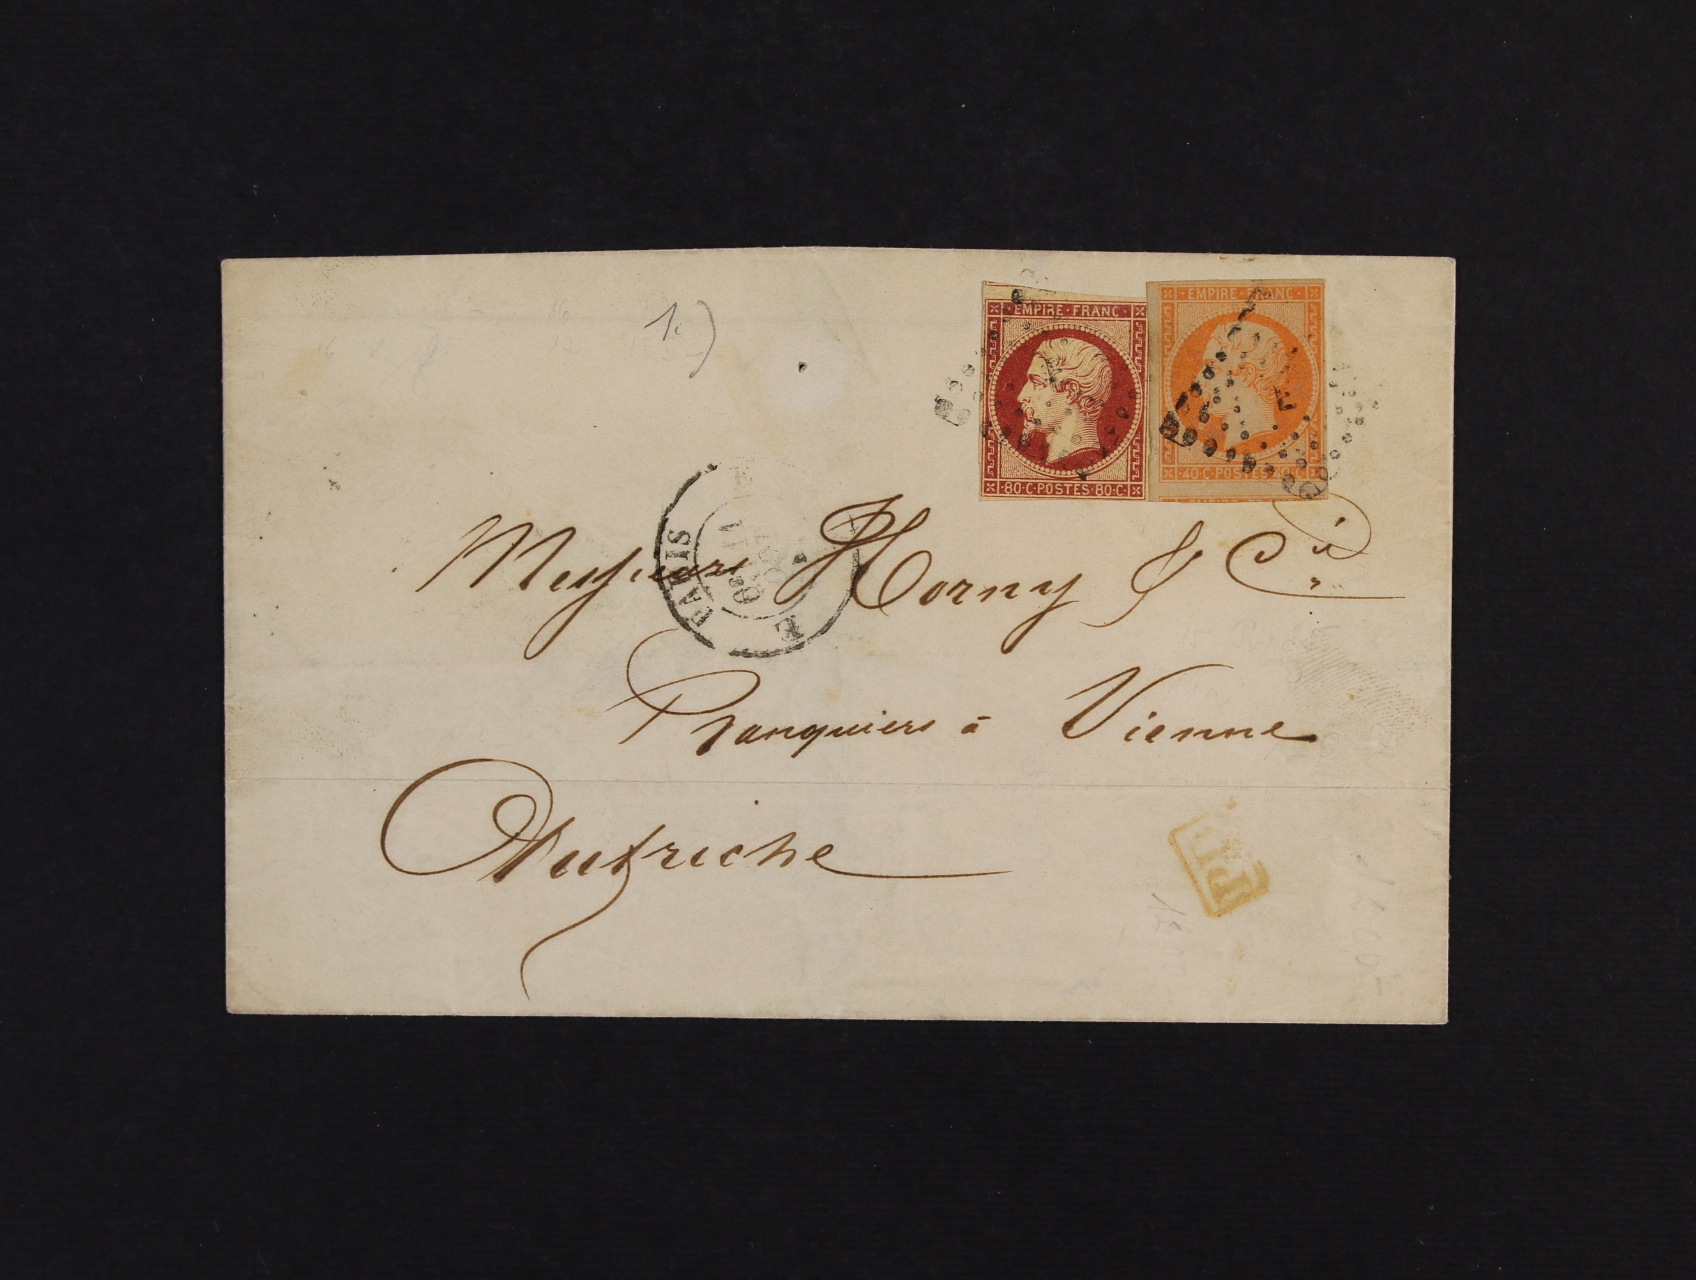 1.)
EMPIRE · FRANC ·
80 · C · POSTES · 80 · C ·
EMPIRE · FRANC ·
40 · C · POSTES · 40 · C ·
PARIS
E
Messieurs Horny & Cie
Banquiers à Vienne
Autriche